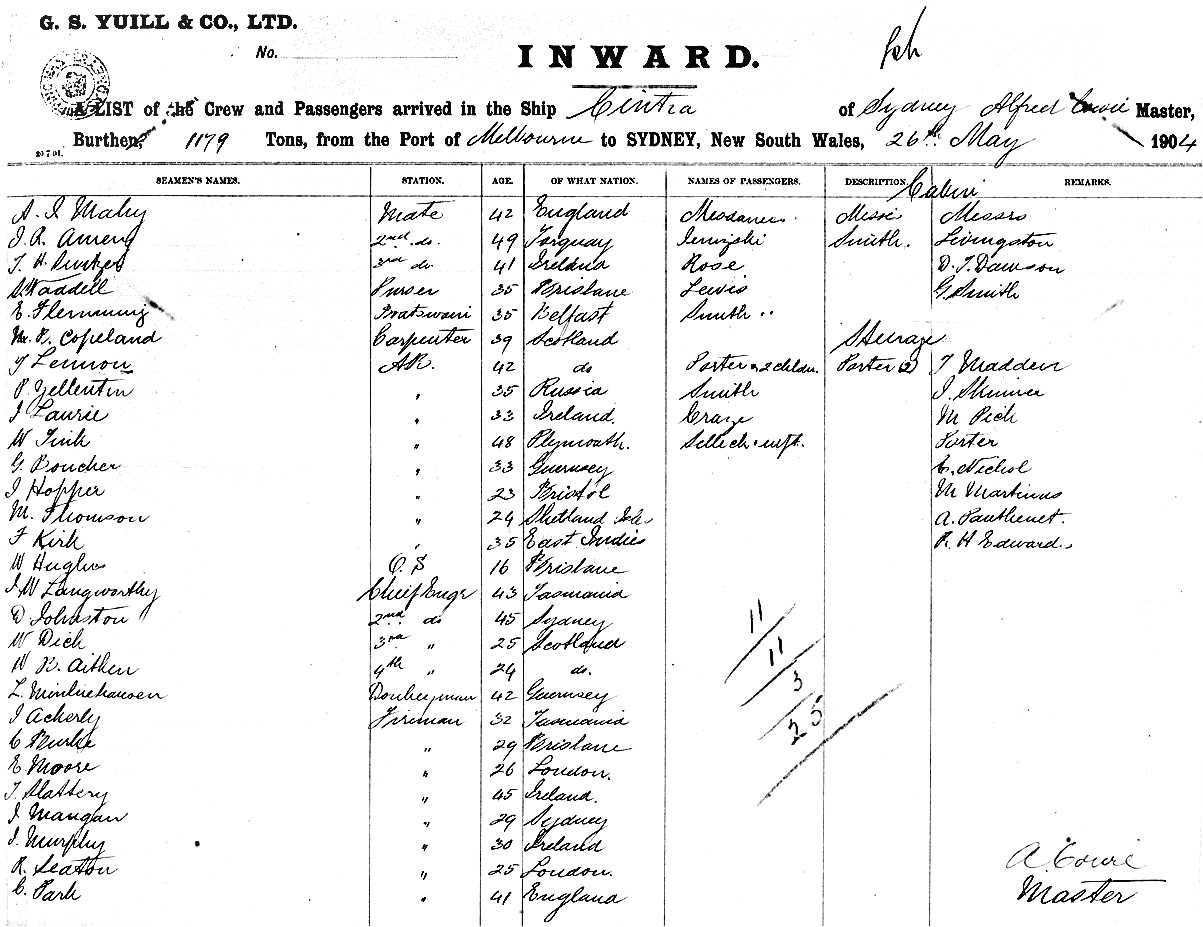 G. S. YUILL & CO., LTD.
No.
INWARD.
A LIST of the Crew and Passengers arrived in the Ship Cintra of Sydney Alfred Cowie Master,
Burthen 1179 Tons, from the Port of Melbourne to SYDNEY, New South Wales, 26th May 1904
SEAMEN'S NAMES. STATION. AGE. OF WHAT NATION. NAMES OF PASSENGERS. DESCRIPTION. REMARKS.
Cabin
Mate 42 England Mesdames Messrs
2nd do. 49 Torquay Smith. Livingston
3rd do 41 Ireland Rose D. J. Dawson
S. Waddell Purser 35 Brisbane Lewis G Smith
E. Flemming Boatswain 35 Belfast Smith "
Copeland Carpenter 39 Scotland Steerage
Lennon AB. 42 do Porter & 2 childn. Porter (2) T Madden
P. Zellentin " 35 Russia Smith J. Skinner
J Laurie " 33 Ireland. Craze M
W Tink " 48 Plymouth. Porter
G. Boucher " 33 Guernsey C. Nichol
J Hopper " 23 Bristol M Martinus
M. Thomson " 24 Shetland Isles A.
F Kirk " 35 East Indies R. H Edwards
W Hughes O. S 16 Brisbane
J. W Langworthy Chief Engr 43 Tasmania
D Johnston 2nd do 45 Sydney
W Dick 3rd " 25 Scotland
W R. Aitken 4th " 24 do.
L. Donkeyman 42 Guernsey
J Ackerly Fireman 32 Tasmania
C Burke " 29 Brisbane
E. Moore " 26 London.
T. Slattery " 45 Ireland.
J Mangan " 29 Sydney
J. Murphy " 30 Ireland
R. Seaton " 25 London.
C. Park " 41 England
11
11
3
25
A. Cowie
Master